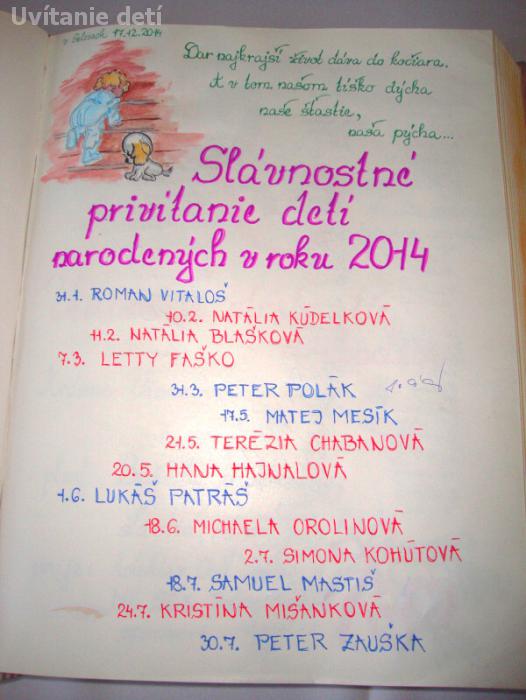 Uvítanie detí
v Selciach 17.12.2014
Dar najkrajší život dáva do kočiara.
A v tom našom tíško dýcha
naše šťastie,
naša pýcha...
Slávnostné
privítanie detí
narodených v roku 2014
31.1. ROMAN VITALOŠ
10.2. NATÁLIA KÚDELKOVÁ
11.2. NATÁLIA BLAŠKOVÁ
7.3. LETTY FAŠKO
31.3. PETER POLÁK
17.5. MATEJ MESÍK
21.5. TERÉZIA CHABANOVÁ
20.5. HANA HAJNALOVÁ
1.6. LUKÁŠ PATRÁŠ
18.6. MICHAELA OROLINOVÁ
2.7. SIMONA KOHÚTOVÁ
18.7. SAMUEL MASTIŠ
24.7. KRISTÍNA MIŠANKOVÁ
30.7. PETER ZAUŠKA